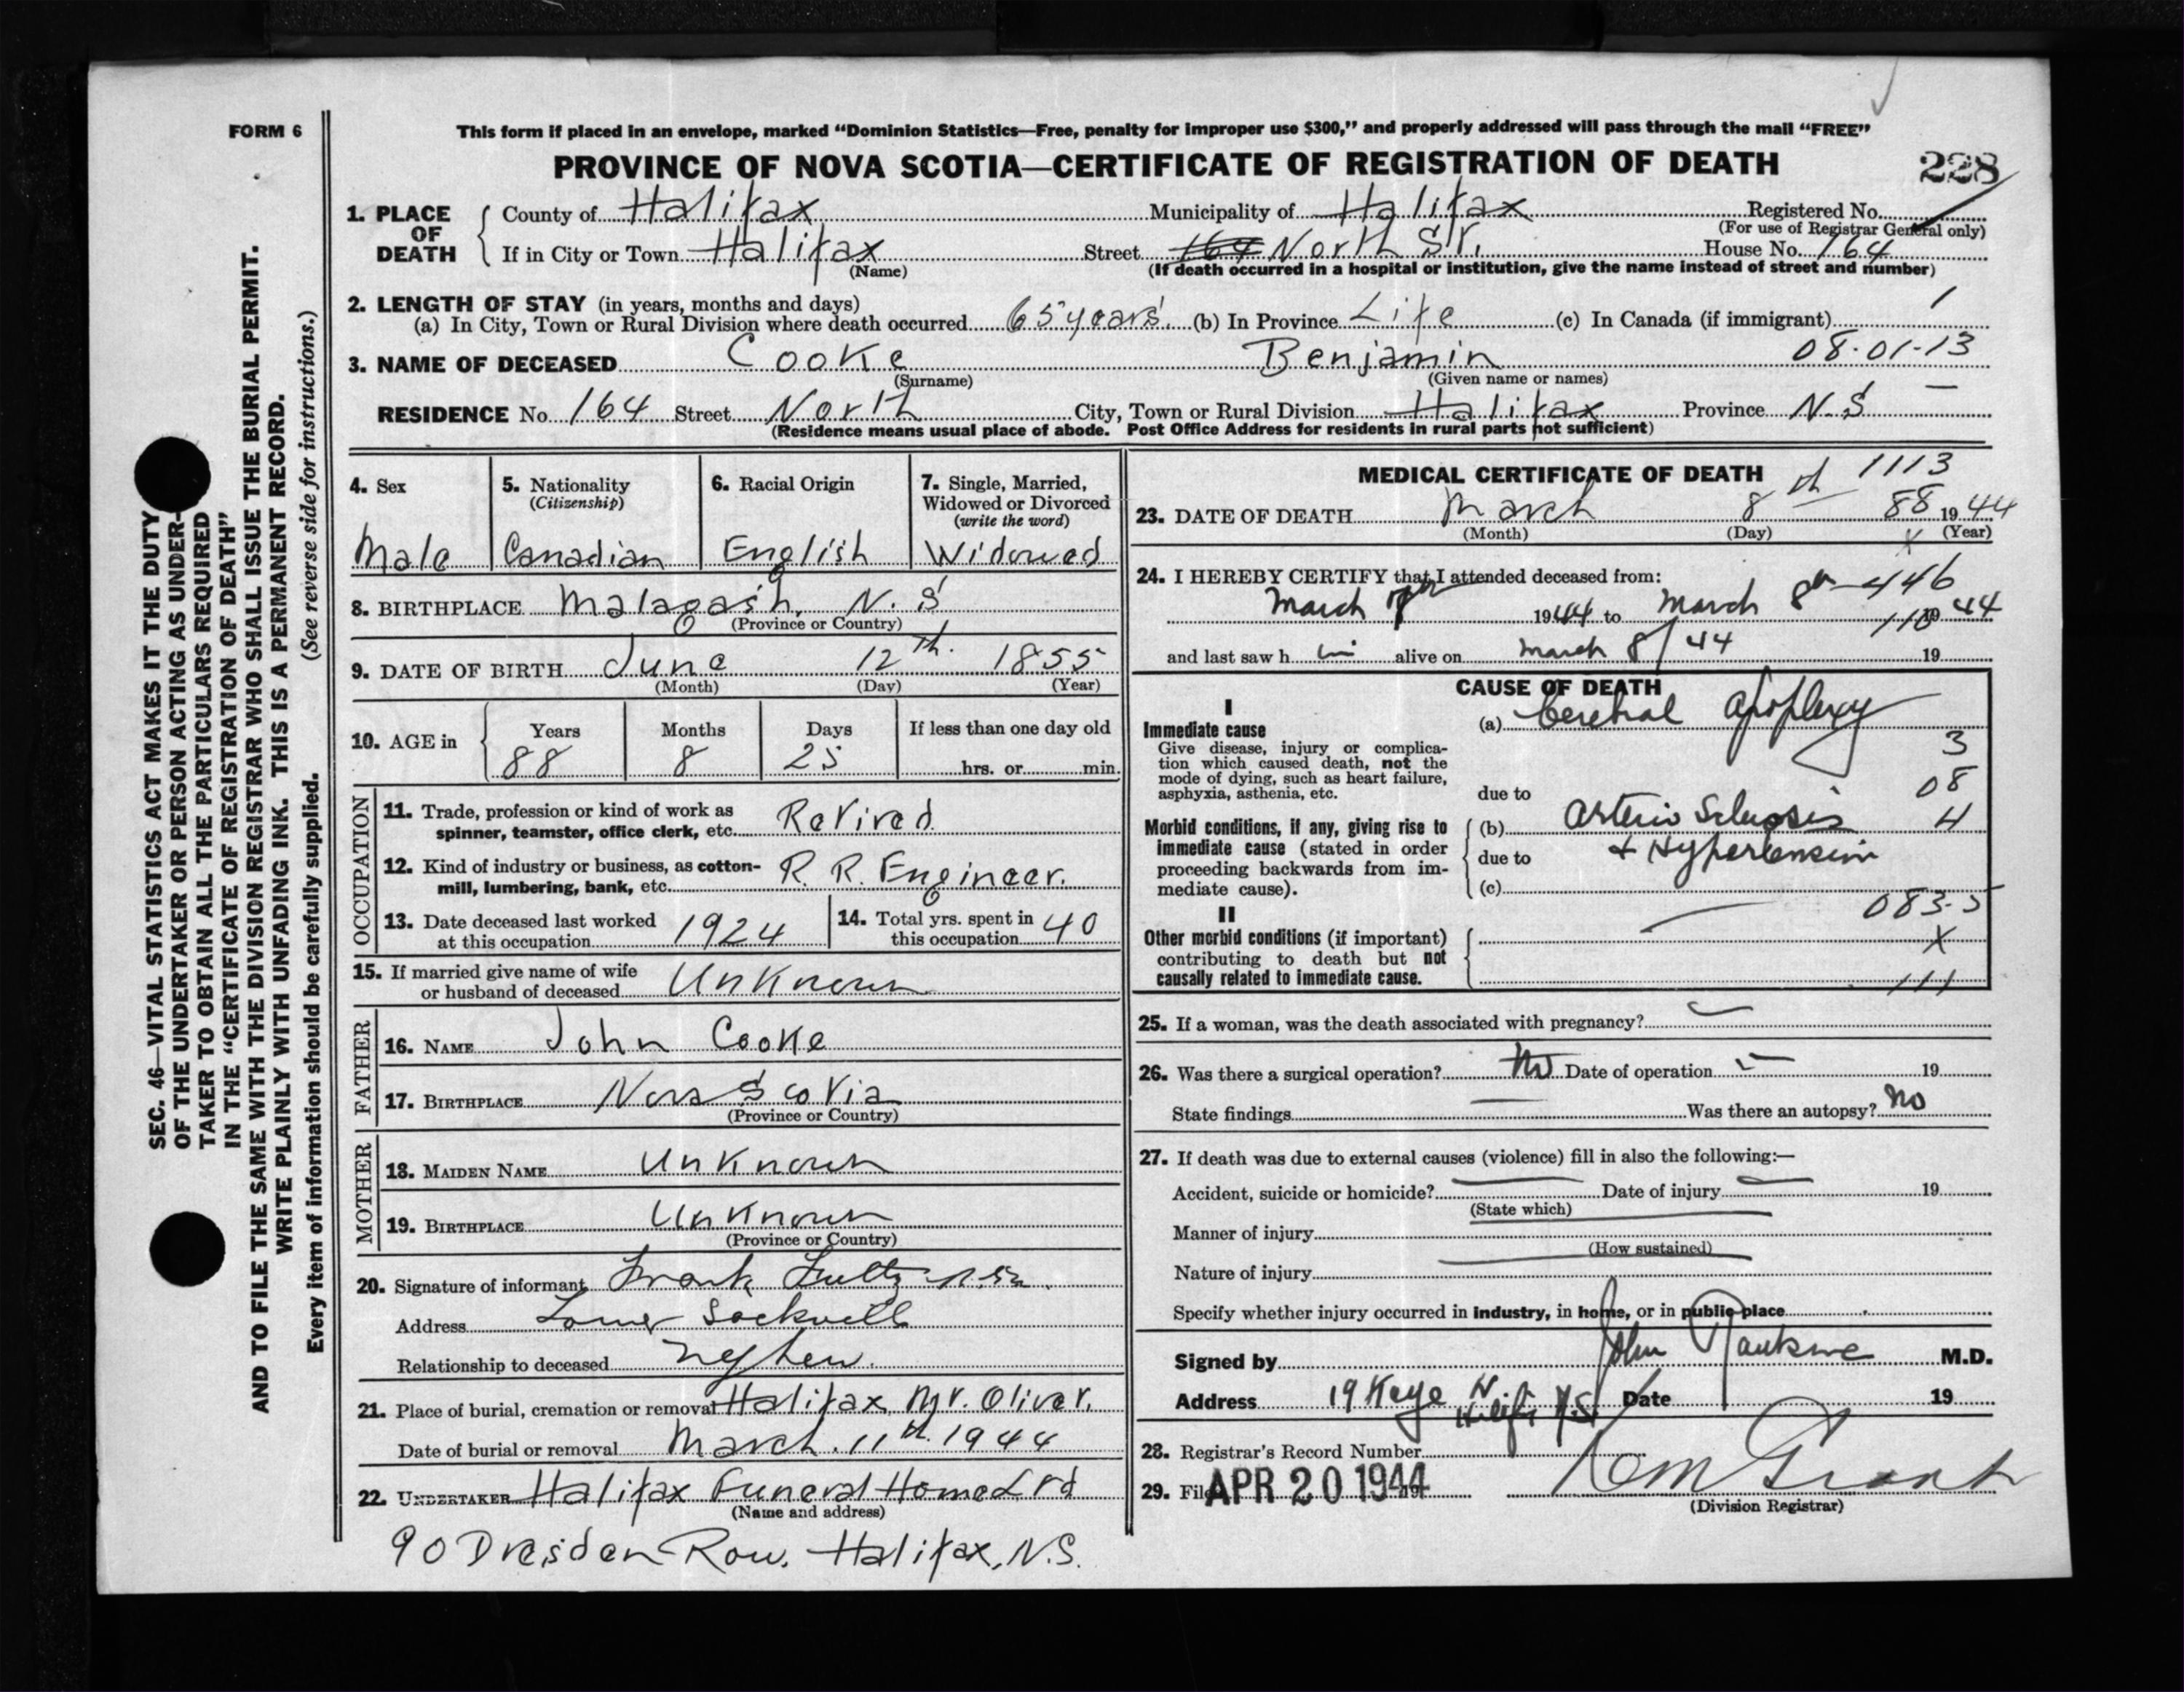 FORM 6
This form if placed in an envelope, marked "Dominion Statistics—Free, penalty for improper use $300," and properly addressed will pass through the mail "FREE"
PROVINCE OF NOVA SCOTIA—CERTIFICATE OF REGISTRATION OF DEATH
228
1. PLACE OF DEATH
County of Halifax Municipality of Halifax Registered No.
(For use of Registrar General only)
If in City or Town Halifax Street 164 North St. House No. 164
(Name) (If death occurred in a hospital or institution, give the name instead of street and number)
2. LENGTH OF STAY (in years, months and days)
(a) In City, Town or Rural Division where death occurred 65 years. (b) In Province Life (c) In Canada (if immigrant)
3. NAME OF DECEASED Cooke Benjamin 08-01-13
(Surname) (Given name or names)
RESIDENCE No. 164 Street North City, Town or Rural Division Halifax Province N.S
(Residence means usual place of abode. Post Office Address for residents in rural parts not sufficient)
4. Sex
Male
5. Nationality
(Citizenship)
Canadian
6. Racial Origin
English
7. Single, Married,
Widowed or Divorced
(write the word)
Widowed
8. BIRTHPLACE Malagash. N.S
(Province or Country)
9. DATE OF BIRTH June 12th. 1855
(Month) (Day) (Year)
10. AGE in
Years Months Days If less than one day old
88 8 25 hrs. or min.
OCCUPATION
11. Trade, profession or kind of work as
spinner, teamster, office clerk, etc. Retired
12. Kind of industry or business, as cotton-
mill, lumbering, bank, etc. R. R. Engineer.
13. Date deceased last worked
at this occupation 1924
14. Total yrs. spent in
this occupation 40
15. If married give name of wife
or husband of deceased Unknown
FATHER
16. NAME John Cooke
17. BIRTHPLACE Nova Scotia
(Province or Country)
MOTHER
18. MAIDEN NAME Unknown
19. BIRTHPLACE Unknown
(Province or Country)
20. Signature of informant Frank Fultz
Address Lower Sackville
Relationship to deceased Nephew.
21. Place of burial, cremation or removal Halifax, Mt. Olivet.
Date of burial or removal March. 11th. 1944
22. UNDERTAKER Halifax Funeral Home Ltd
(Name and address)
90 Dresden Row, Halifax, N.S.
MEDICAL CERTIFICATE OF DEATH
1113
23. DATE OF DEATH March 8th 88 1944
(Month) (Day) (Year)
24. I HEREBY CERTIFY that I attended deceased from:
446
March 1944 to March 8th 1944
110
and last saw h im alive on March 8/44 19
CAUSE OF DEATH
I
Immediate cause
Give disease, injury or complica-
tion which caused death, not the
mode of dying, such as heart failure,
asphyxia, asthenia, etc.
(a) Cerebral apoplexy
3
08
due to
Morbid conditions, if any, giving rise to
immediate cause (stated in order
proceeding backwards from im-
mediate cause).
(b) Arterio Sclerosis 4
due to + Hypertension
(c)
083-5
II
Other morbid conditions (if important)
contributing to death but not
causally related to immediate cause.
X
111
25. If a woman, was the death associated with pregnancy?
26. Was there a surgical operation? No Date of operation 19
State findings Was there an autopsy? No
27. If death was due to external causes (violence) fill in also the following:—
Accident, suicide or homicide? Date of injury 19
(State which)
Manner of injury
(How sustained)
Nature of injury
Specify whether injury occurred in industry, in home, or in public place
Signed by John M.D.
Address 19 Kaye Date 19
N.S.
28. Registrar's Record Number
29. Filed APR 20 1944
(Division Registrar)
SEC. 46—VITAL STATISTICS ACT MAKES IT THE DUTY
OF THE UNDERTAKER OR PERSON ACTING AS UNDER-
TAKER TO OBTAIN ALL THE PARTICULARS REQUIRED
IN THE "CERTIFICATE OF REGISTRATION OF DEATH"
AND TO FILE THE SAME WITH THE DIVISION REGISTRAR WHO SHALL ISSUE THE BURIAL PERMIT.
WRITE PLAINLY WITH UNFADING INK. THIS IS A PERMANENT RECORD.
Every item of information should be carefully supplied. (See reverse side for instructions.)